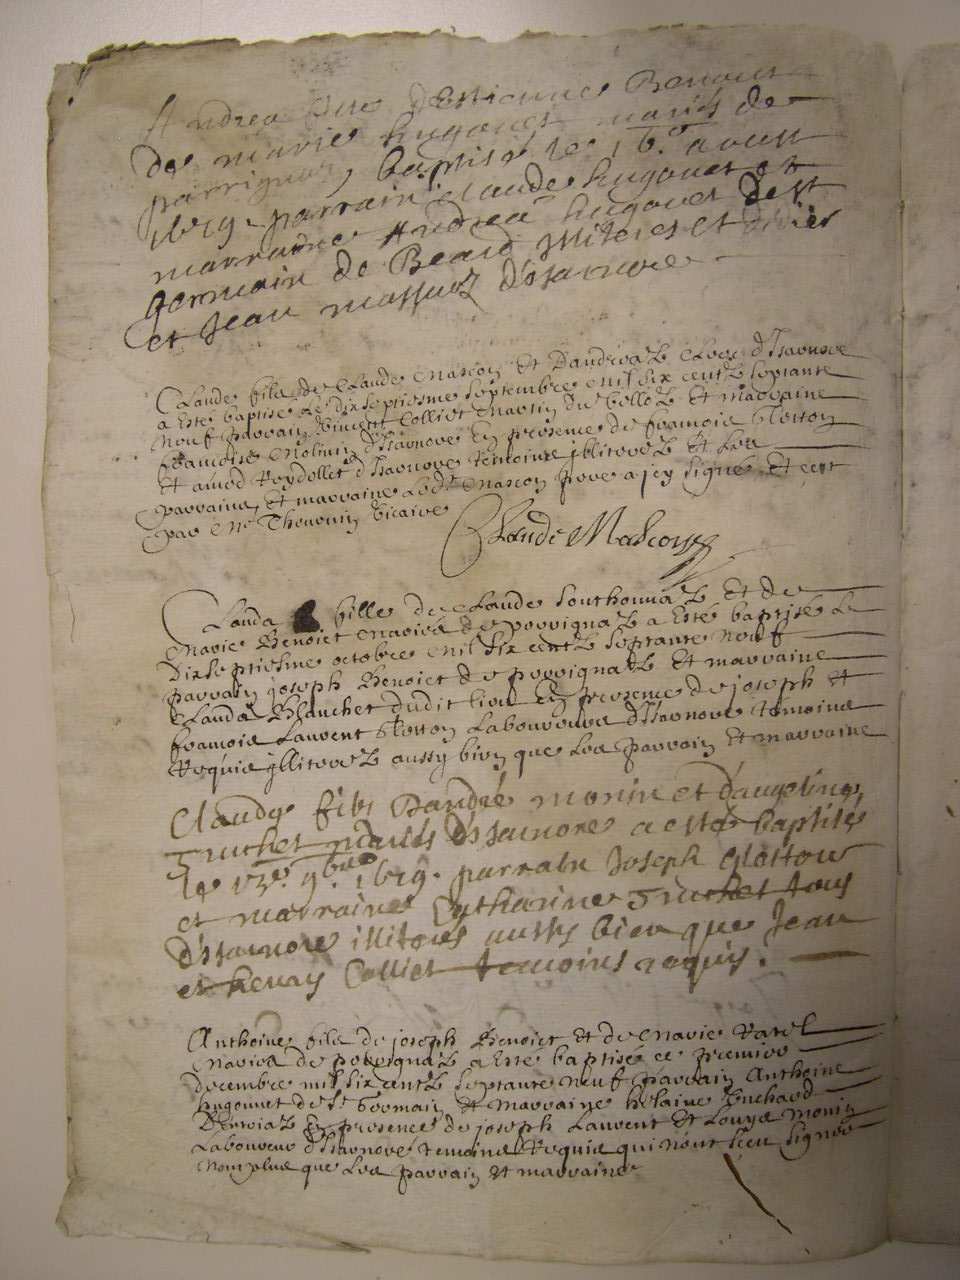 Andrea fille d'Estienne Benoict
de marie hugonet mariés de
parrignaz baptise le 16e aoust
1679. parrain claude hugonet et
marraine Andrea hugonet de st
germain de Beard illiteres et
et Jean massuez d'Isarnore
Claude filz de Claude Mascon Et D'andrea d'Isarnore
a Esté baptisé Le dix septiesme septembre Mil six centz septante
neuf parrain Vincent Colliet Martin du et marraine
françoise Molinin d'Isarnore En presence de françois Clotton
Et amed Reydellet d'Isarnore temoins jllitorez Et Les
parrains, et marraine Ledt Mascon pere a jcy signé Et est
par Mre Thouvenin vicaire
Claude Mascon
Clauda fille de Claude Southonnaz Et de
Marie Benoict Mariés de perrignaz a Esté baptisé Le
Dixseptiesme octobre Mil six centz septante neuf
parrain joseph Benoict de perrignaz Et marraine
Clauda Blanchet dudit lieu En presence de joseph Et
françois Laurent Clotton Laboureurs d'Isarnore temoins
Requis jllitorez aussy bien que Les parrain Et marraine
Claudy fils D'andré monin et d'angeline
Truchet mariés d'Isarnore a esté baptisés
le 13e. 9bre 1679. parrain Joseph Clottou
et marraine Catharine Truchet tous
d'Isarnore illitorés aussy bien que Jean
et henry Colliet temoins requis.
Anthoine filz de joseph Benoict Et de Marie Ravel
Mariés de perrignaz a Esté baptisé ce premier
decembre mil six centz septante neuf parrain Anthoine
hugonnet de st Germain Et marraine helaine Buchard
En presence de joseph Laurent Et Louys Monin
Laboureur d'Isarnore temoins Requis qui n'ont sceu signer
Non plus que Les parrain Et marraine